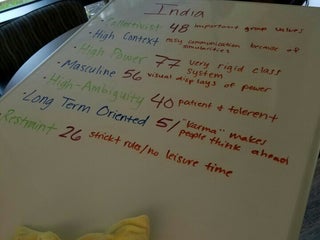 India
Collectivist 48 important group values
·High Context easy communication because of
similarities
·High Power 77 very rigid class
system
·Masculine 56 visual displays of power
·High-Ambiguity 40 patient + tolerent
·Long Term Oriented 51 "karma" makes
people think ahead
Restraint 26 strickt rules/no leisure time